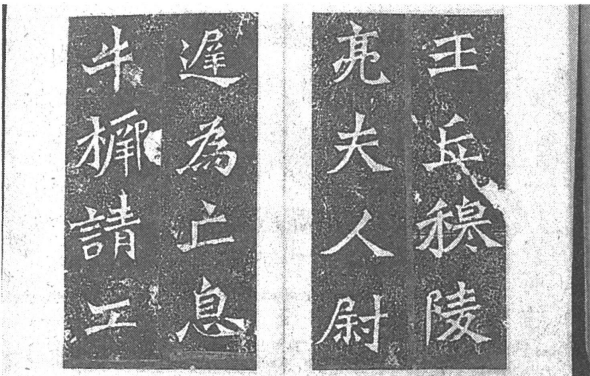 王丘穆陵
亮夫人尉
遲為亡息
牛橛請工